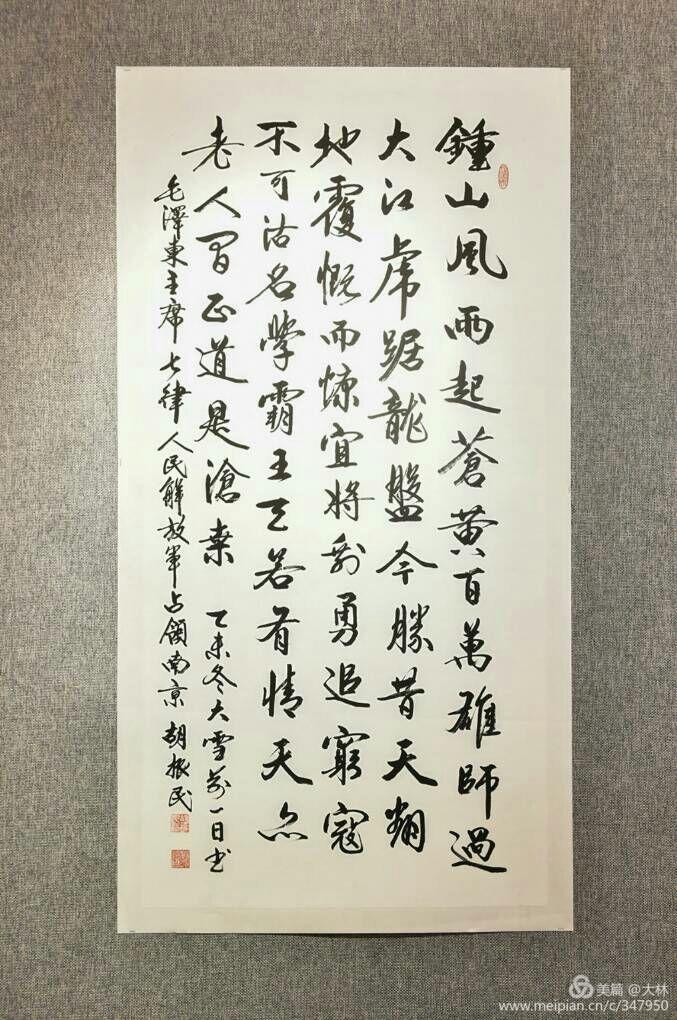 鍾山風雨起蒼黄百萬雄師過
大江虎踞龍盤今勝昔天翻
地覆慨而慷宜將剩勇追窮寇
不可沽名學霸王天若有情天亦
老人間正道是滄桑 乙未冬大雪前一日书
毛澤東主席七律人民解放軍占領南京 胡振民
美篇 @大林
www.meipian.cn/c/347950